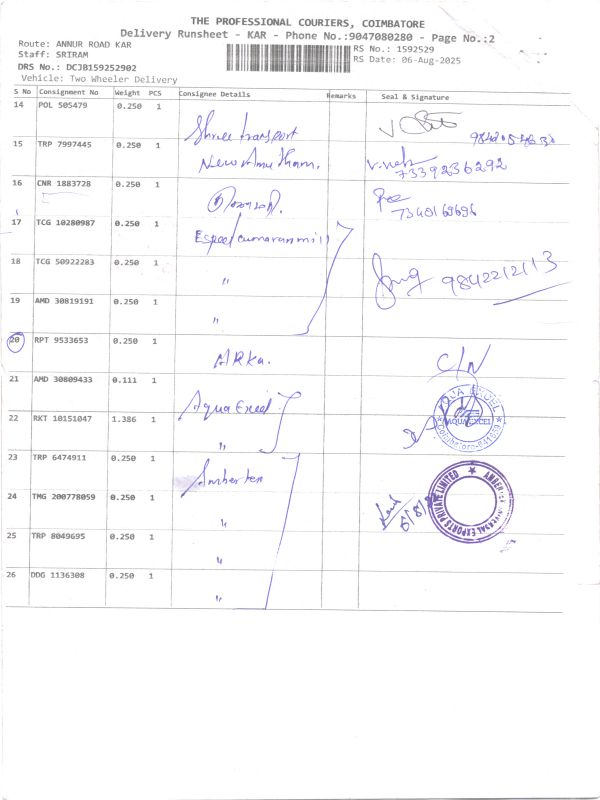 THE PROFESSIONAL COURIERS, COIMBATORE
Delivery Runsheet - KAR - Phone No.:9047080280 - Page No.:2
Route: ANNUR ROAD KAR
Staff: SRIRAM
DRS No.: DCJB159252902
Vehicle: Two Wheeler Delivery
RS No.: 1592529
RS Date: 06-Aug-2025
S No Consignment No Weight PCS Consignee Details Remarks Seal & Signature
14 POL 505479 0.250 1 Shree transport
15 TRP 7997445 0.250 1 New Amutham. 7339236292
16 CNR 1883728 0.250 1 7340169696
17 TCG 10280987 0.250 1
18 TCG 50922283 0.250 1 " 9842212113
19 AMD 30819191 0.250 1 "
20 RPT 9533653 0.250 1 ARka. C/N
21 AMD 30809433 0.111 1 Aqua Excel
AQUA EXCEL
22 RKT 10151047 1.386 1 "
23 TRP 6474911 0.250 1
24 TMG 200778059 0.250 1 "
25 TRP 8049695 0.250 1 "
26 DDG 1136308 0.250 1 "